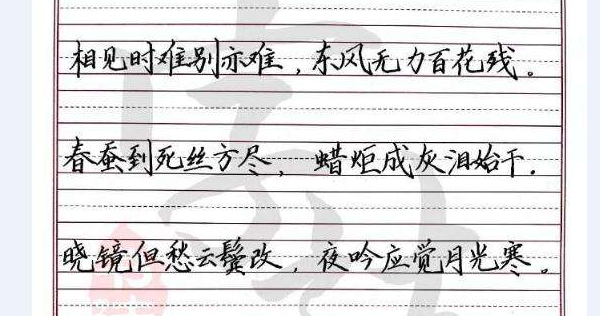 相见时难别亦难，东风无力百花残。
春蚕到死丝方尽，蜡炬成灰泪始干.
晓镜但愁云鬓改，夜吟应觉月光寒。